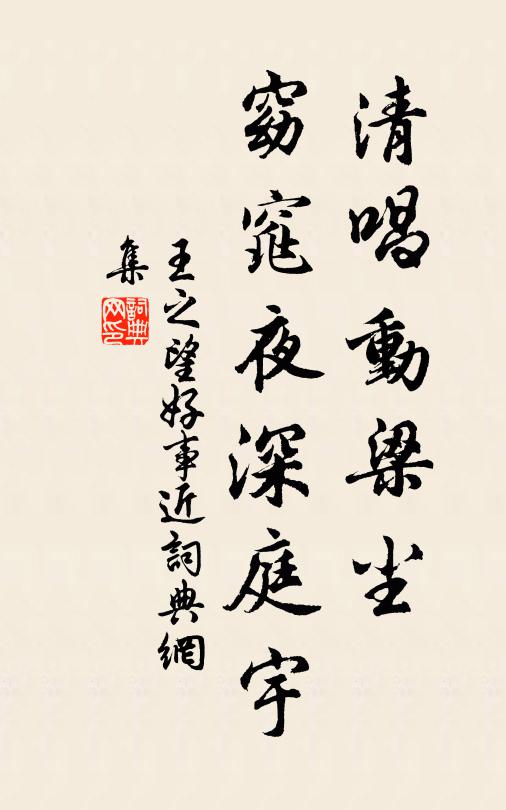 清唱動梁尘
窈窕夜深庭宇
王之望好事近詞典網
集
詞典
网印